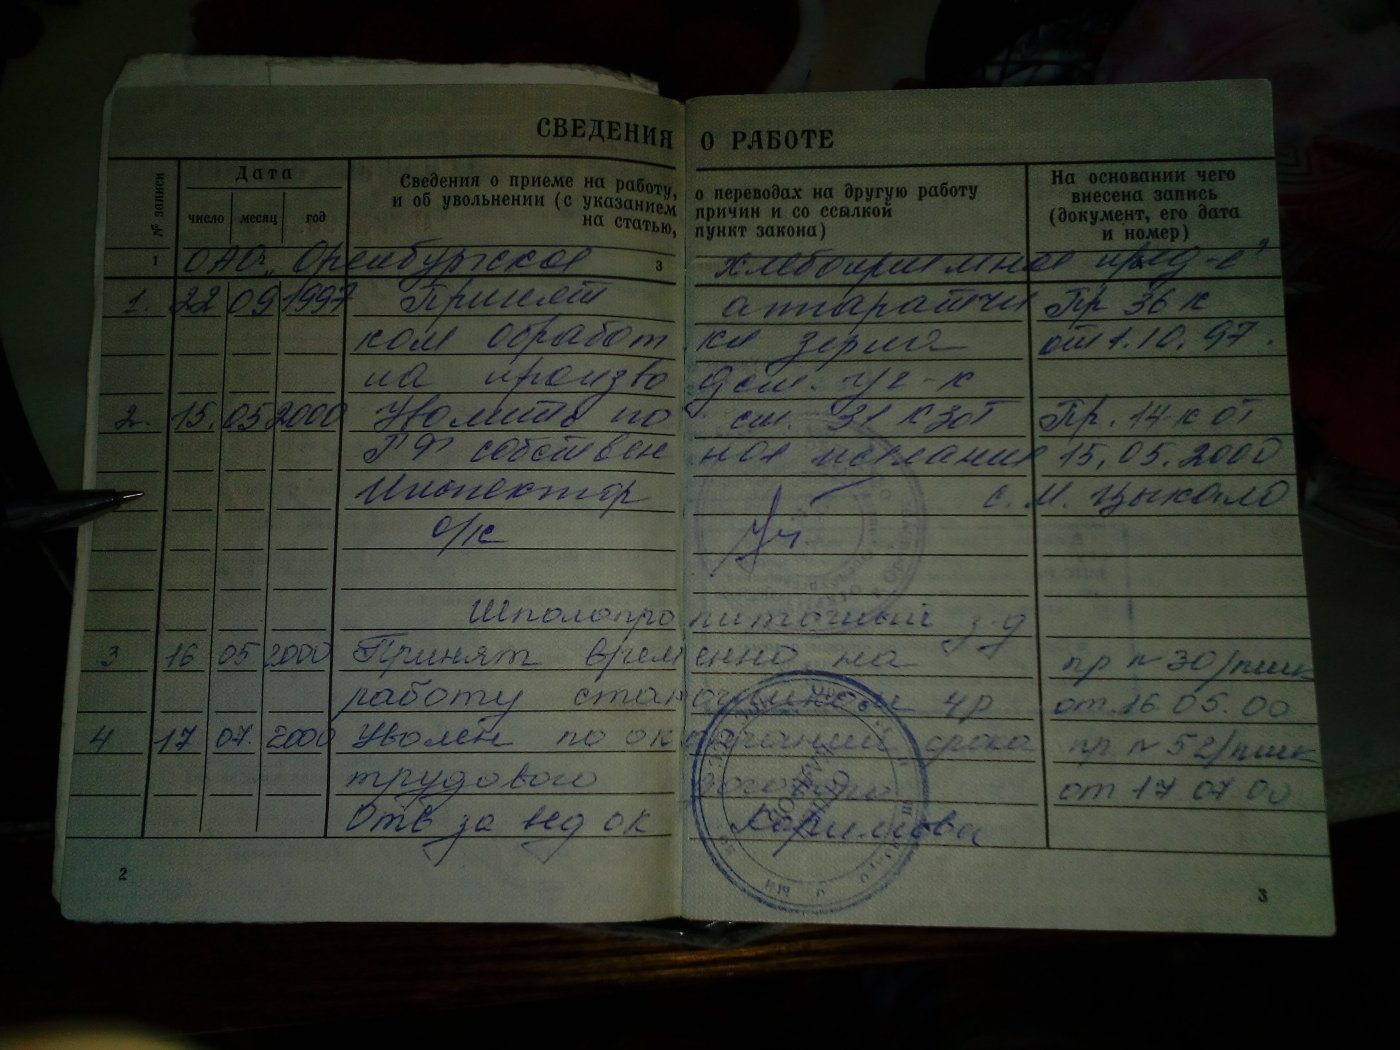 СВЕДЕНИЯ О РАБОТЕ
№ записи
Дата
число месяц год
Сведения о приеме на работу, о переводах на другую работу
и об увольнении (с указанием причин и со ссылкой
на статью, пункт закона)
На основании чего
внесена запись
(документ, его дата
и номер)
1 3
ОАО „Оренбургское хлебоприемное пред-е"
1. 22 09 1997 Принят аппаратчи Пр 36 к
ком обработ ки зерна от 1.10.97.
на произво дст. уч-к
2. 15. 05 2000 Уволить по ст. 31 КЗоТ Пр. 14-к от
РФ собствен ное желание 15.05.2000
Инспектор с. М. Цыкало
о/к
Шпалопро питочный з-д
3 16 05 2000 Принят врем енно на пр № 30/пшк
работу стан очником 4р от 16.05.00
4 17 07. 2000 Уволен по ок ончании срока пр № 52/пшк
трудового договора от 17 07 00
Отв за вед ок Каримова
2
3